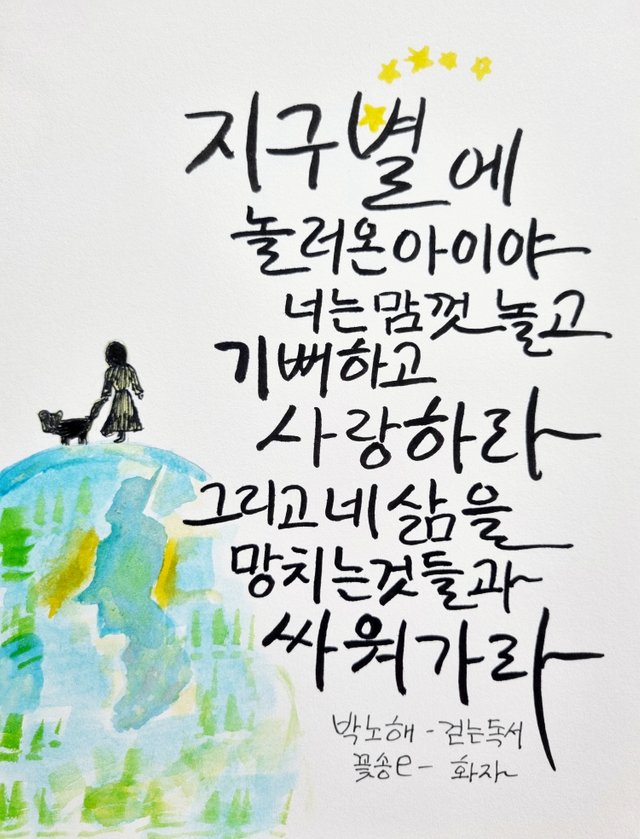 지구별에
놀러온아이야
너는맘껏 놀고
기뻐하고
사랑하라
그리고 네 삶을
망치는것들과
싸워가라
박노해 - 걷는독서
꽃송e - 화자